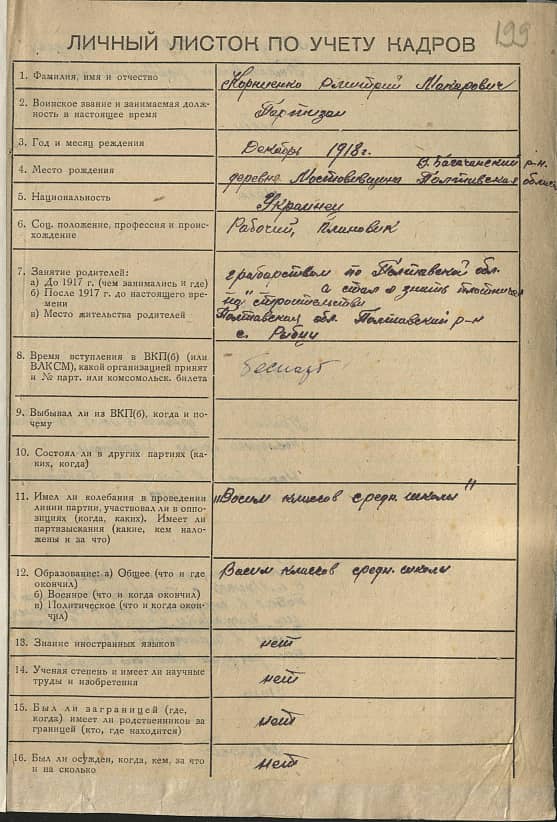 199
ЛИЧНЫЙ ЛИСТОК ПО УЧЕТУ КАДРОВ
1. Фамилия, имя и отчество
Корниенко Дмитрий Макарович
2. Воинское звание и занимаемая долж-
ность в настоящее время
Партизан
3. Год и месяц реждения
Декабрь 1918 г.
4. Место рождения
В. Багачанский р-н.
деревня Полтавская облас
5. Национальность
Украинец
6. Соц. положение, профессия и проис-
хождение
Рабочий, плановик
7. Занятие родителей:
а) До 1917 г. (чем занимались и где)
б) После 1917 г. до настоящего вре-
мени
в) Место жительства родителей
грабарством по Полтавской обл.
а стал
Полтавская обл. Полтавский р-н
с. Рыбцы
8. Время вступления в ВКП(б) (или
ВЛКСМ), какой организацией принят
и № парт. или комсомольск. билета
беспарт
9. Выбывал ли из ВКП(б), когда и по-
чему
10. Состоял ли в других партиях (ка-
ких, когда)
11. Имел ли колебания в проведении
линии партии, участвовал ли в оппо-
зициях (когда, каких). Имеет ли
партвзыскания (какие, кем нало-
жены и за что)
"Восим классов средн. школы"
12. Образование: а) Общее (что и где
окончил)
б) Военное (что и когда окончил)
в) Политическое (что и когда окон-
чил)
Васим классов средн. школы
13. Знание иностранных языков
нет
14. Ученая степень и имеет ли научные
труды и изобретения
нет
15. Был ли заграницей (где,
когда) имеет ли родственников за
границей (кто, где находится)
нет
16. Был ли осужден, когда, кем, за что
и на сколько
нет